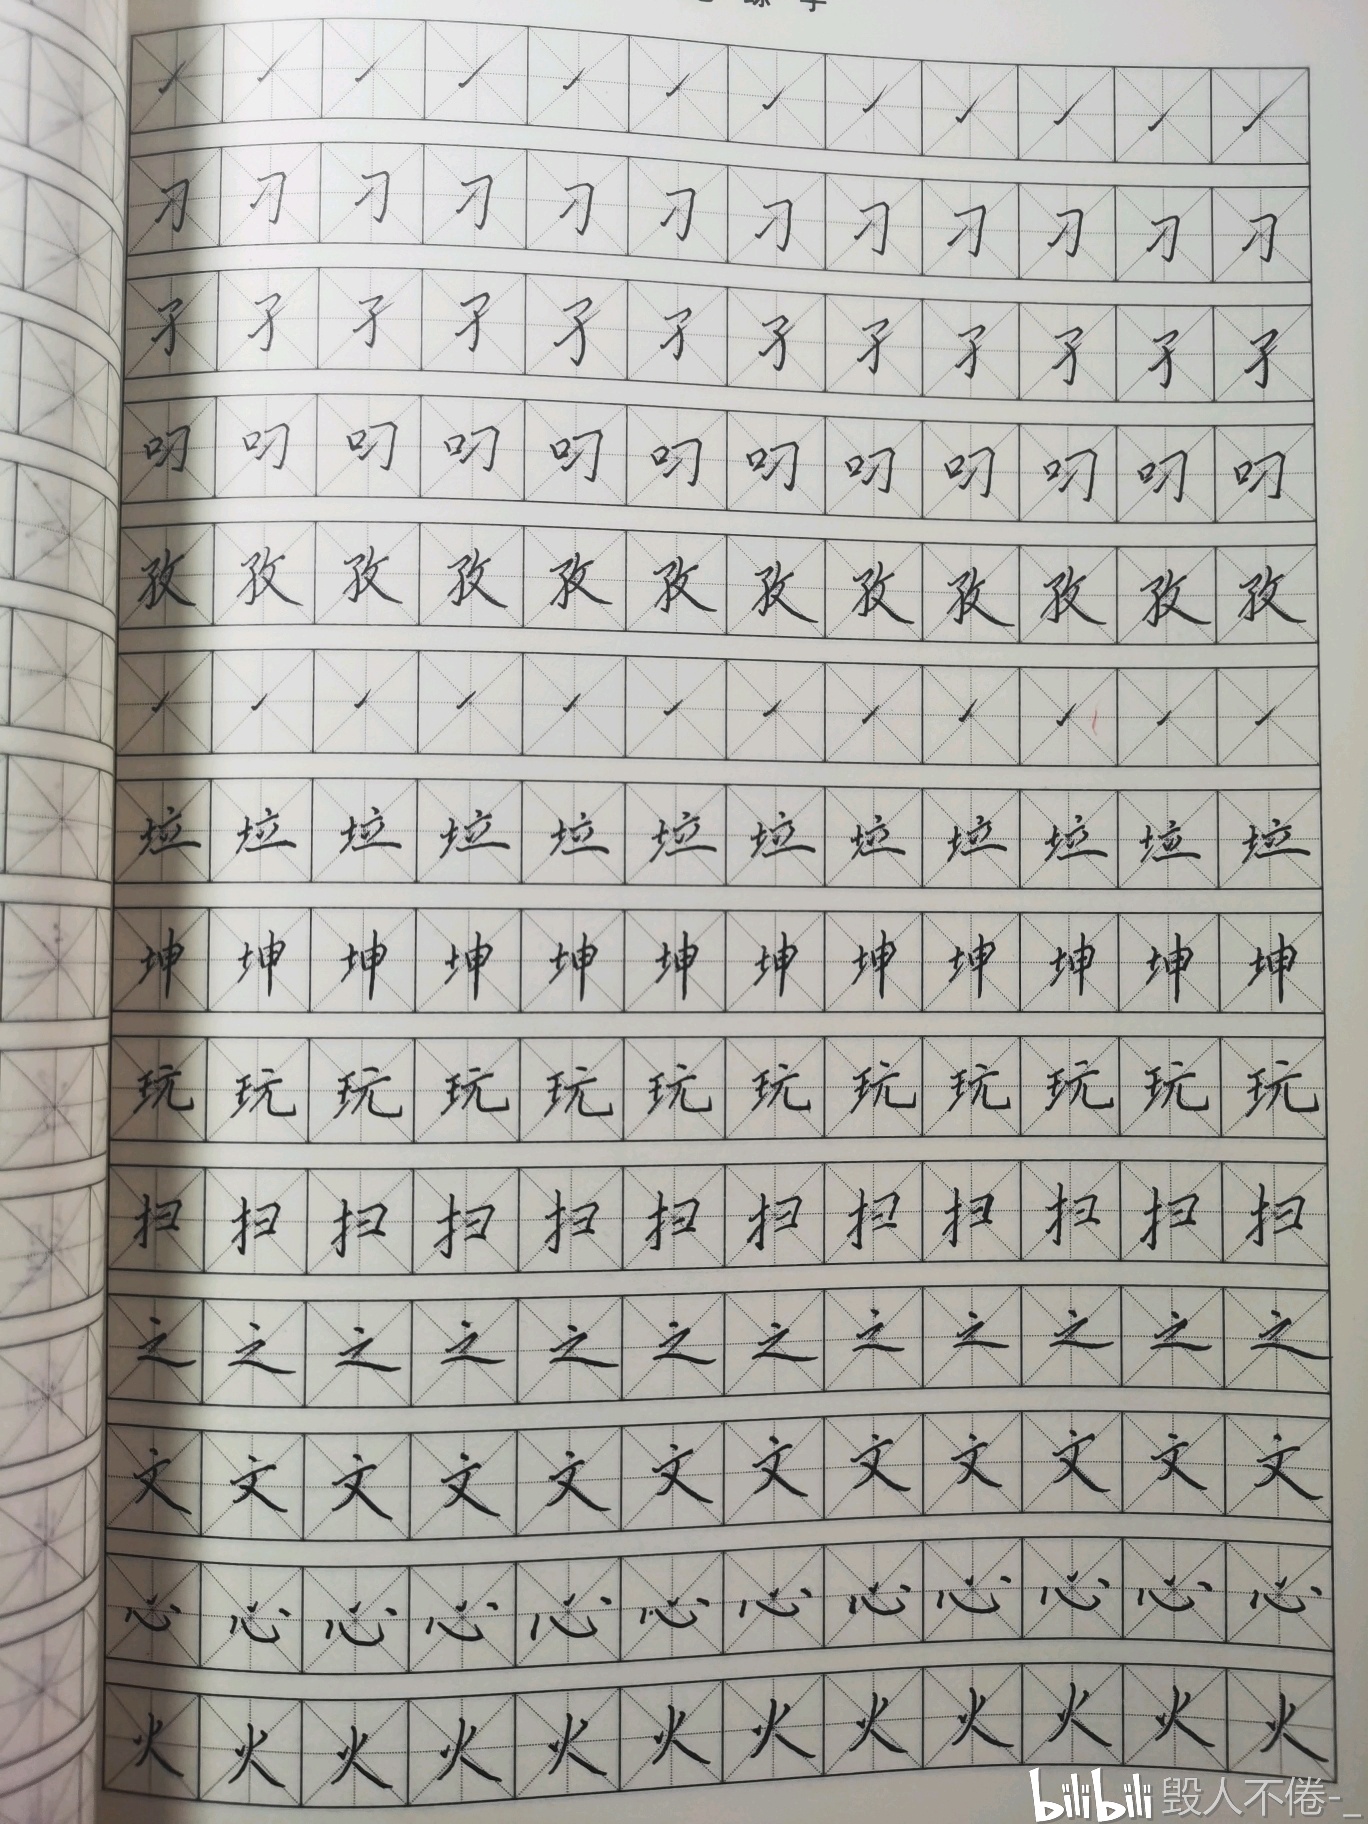 练字
㇀㇀㇀㇀㇀㇀㇀㇀㇀㇀㇀㇀
刁刁刁刁刁刁刁刁刁刁刁刁
孑孑孑孑孑孑孑孑孑孑孑孑
叼叼叼叼叼叼叼叼叼叼叼叼
孜孜孜孜孜孜孜孜孜孜孜孜
㇀㇀㇀㇀㇀㇀㇀㇀㇀㇀㇀㇀
垃垃垃垃垃垃垃垃垃垃垃垃
坤坤坤坤坤坤坤坤坤坤坤坤
玩玩玩玩玩玩玩玩玩玩玩玩
扫扫扫扫扫扫扫扫扫扫扫扫
之之之之之之之之之之之之
文文文文文文文文文文文文
心心心心心心心心心心心心
火火火火火火火火火火火火
bilibili 毁人不倦-_